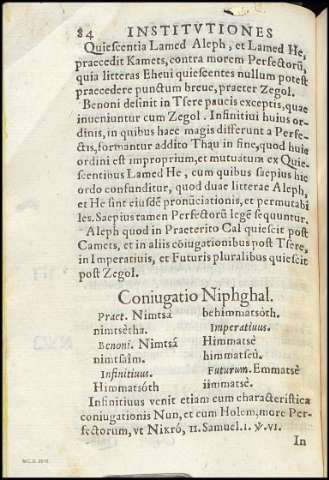 84 INSTITVTIONES
Quiescentia Lamed Aleph, et Lamed He,
praecedit Kamets, contra morem Perfectorū,
quia litteras Eheui quiescentes nullum potest
praecedere punctum breue, praeter Zegol.
Benoni desinit in Tsere paucis exceptis, quae
inueniuntur cum Zegol. Infinitiui huius or-
dinis, in quibus haec magis differunt a Perfe-
ctis, formantur addito Thau in fine, quod huic
ordini est improprium, et mutuatum ex Quie-
scentibus Lamed He, cum quibus saepius hic
ordo confunditur, quod duae litterae Aleph,
et He sint eiusdē pronūciationis, et permutabi
les. Saepius tamen Perfectorū legē sequuntur.
Aleph quod in Praeterito Cal quiescit post
Camets, et in aliis cōiugationibus post Tsere,
in Imperatiuis, et Futuris pluralibus quiescit
post Zegol.
Coniugatio Niphghal.
Praet. Nimtsā
nimtsètha.
Benoni. Nimtsā
nimtsaìm.
Infinitiuus.
Himmatsóth
behimmatsòth.
Imperatiuus.
Himmatsè
himmatseù.
Futurum. Emmatsè
iimmatsè.
Infinitiuus venit etiam cum characteristica
coniugationis Nun, et cum Holem, more Per-
fectorum, vt Nikrō, II. Samuel. I. ℣. VI.
In